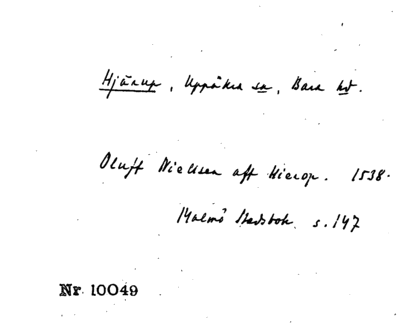 Hjärup, Uppåkra sn, Bara hd.
Oluff Nielsen aff Hierop. 1538.
Malmö Stadsbok s. 147
Nr 10049